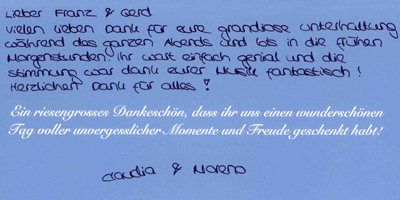 Lieber Franz & Gerd
Vielen lieben Dank für eure grandiose Unterhaltung
während des ganzen Abends und bis in die frühen
Morgenstunden. Ihr wart einfach genial und die
Stimmung war dank eurer Musik fantastisch!
Herzlichen Dank für alles!
Ein riesengrosses Dankeschön, dass ihr uns einen wunderschönen
Tag voller unvergesslicher Momente und Freude geschenkt habt!
Claudia & Moreno